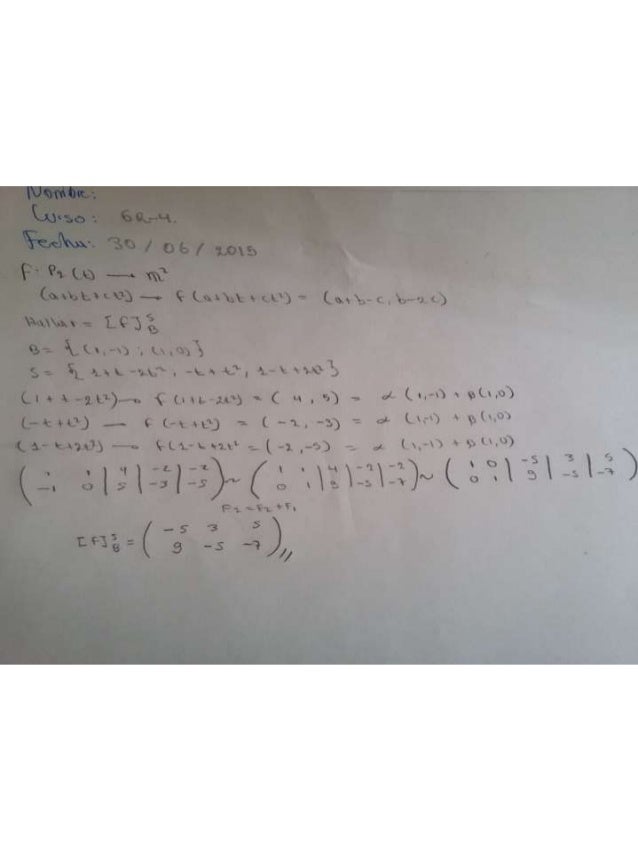 Nombre:
Curso: GR-4.
Fecha: 30/06/2015
F: P₂(t) → m²
(a+bt+ct²) → f(a+bt+ct²) = (a+b-c, b-2c)
Hallar = [f]ˢ_B
B = {(1,-1); (1,0)}
S = {1+t-2t², -t+t², 1-t+2t²}
(1+t-2t²) → f(1+t-2t²) = (4, 5) = α(1,-1) + β(1,0)
(-t+t²) → f(-t+t²) = (-2, -3) = α(1,-1) + β(1,0)
(1-t+2t²) → f(1-t+2t² = (-2, -5) = α(1,-1) + β(1,0)
( 1 1 | 4 | -2 | -2 ) ~ ( 1 1 | 4 | -2 | -2 ) ~ ( 1 0 | -5 | 3 | 5 )
( -1 0 | 5 | -3 | -5 ) ( 0 1 | 9 | -5 | -7 ) ( 0 1 | 9 | -5 | -7 )
F₂=F₂+F₁
[f]ˢ_B = ( -5 3 5 )
( 9 -5 -7 )//